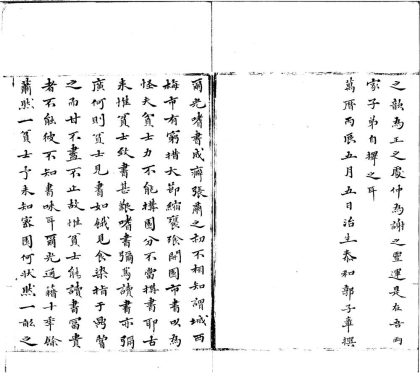 之韻為王之殷仲為謝之靈運是在吾兩
家子弟自擇之耳
萬曆丙辰五月五日治生泰和郭子章撰
爾光嗜書成癖張肅之初不相知謂城西
梅市有窮措大節縮 開園市書以為
怪夫貧士力不能搆園分不當搆書耶古
來惟貧士於書甚艱嗜書彌篤讀書亦彌
廣何則貧士見書如餓見食染指于鼎嘗
之而甘不盡不止故惟貧士能讀書冨貴
者不能彼不知書味耳爾光通籍十年餘
蕭然一貧士予未知密園何狀然一 之